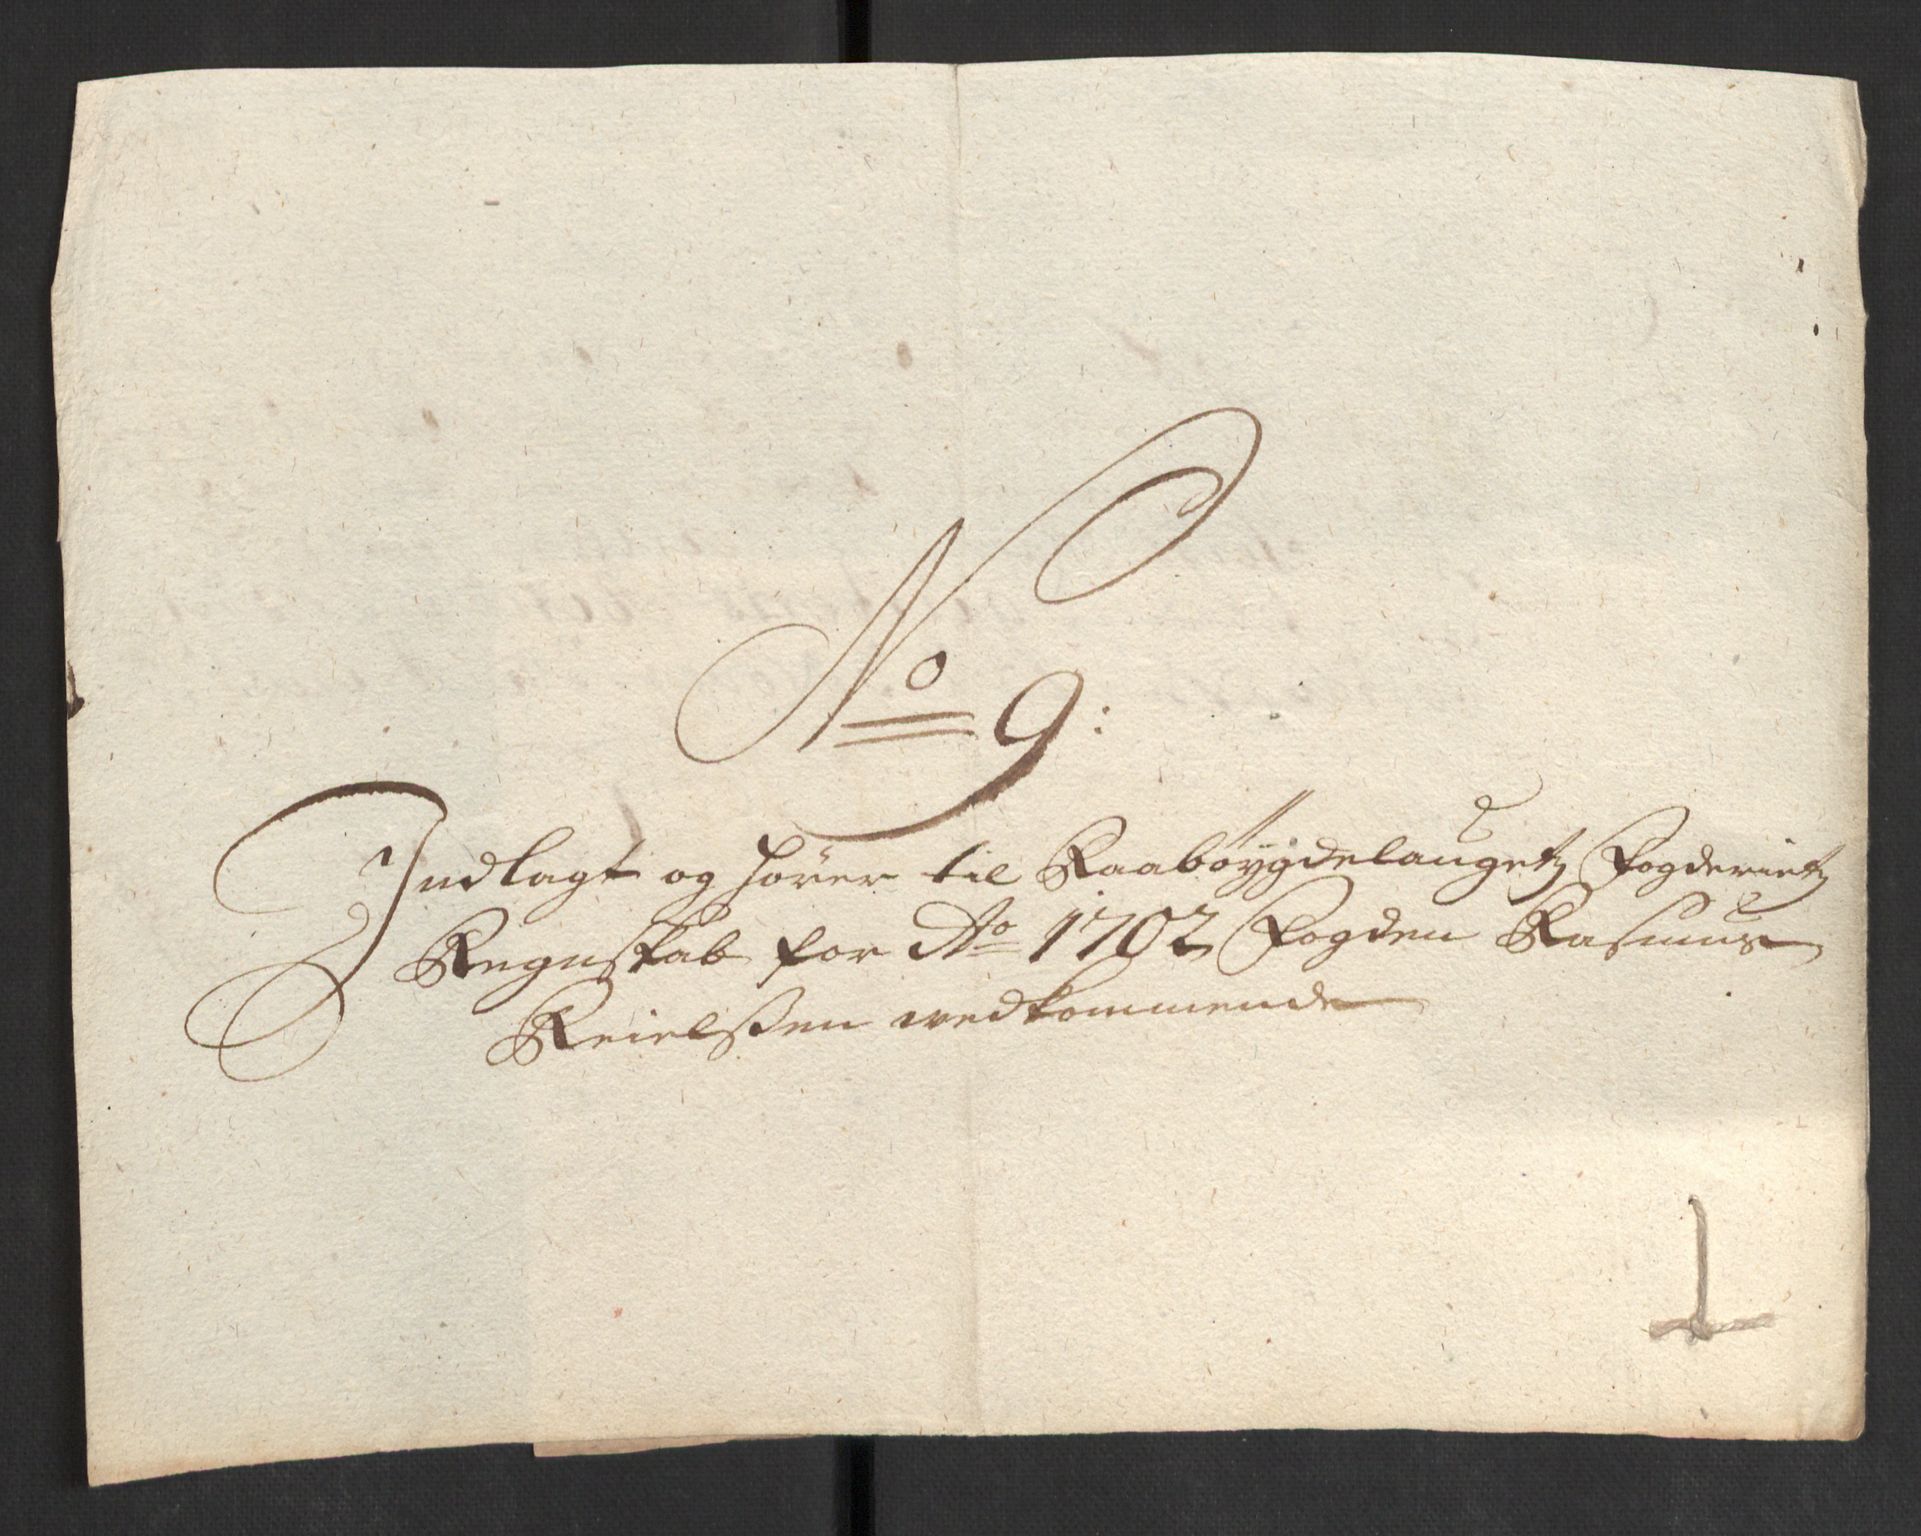 No 9:
Indlagt og hører til Raabøygdelaugetz Fogderietz
Regnskab for Ao 1702 Fogden Rasmus
Reielssen vedkommende